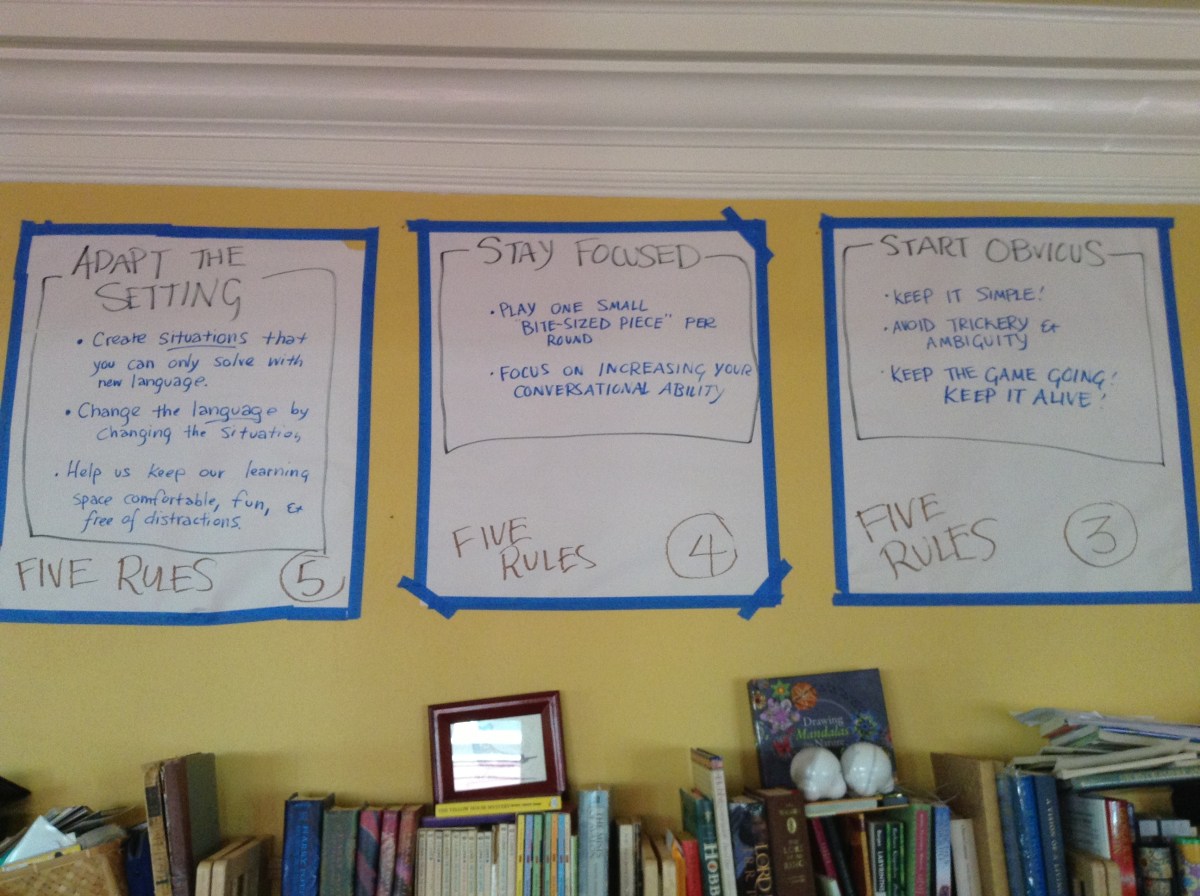 ADAPT THE
SETTING
• Create situations that
you can only solve with
new language.
• Change the language by
changing the situation
• Help us keep our learning
space comfortable, fun, &
free of distractions.
FIVE RULES 5
STAY FOCUSED
• PLAY ONE SMALL
"BITE-SIZED PIECE" PER
ROUND
• FOCUS ON INCREASING YOUR
CONVERSATIONAL ABILITY
FIVE
RULES 4
START OBVIOUS
• KEEP IT SIMPLE!
• AVOID TRICKERY &
AMBIGUITY
• KEEP THE GAME GOING!
KEEP IT ALIVE!
FIVE
RULES 3
Drawing
Mandalas
HOBB
LORD